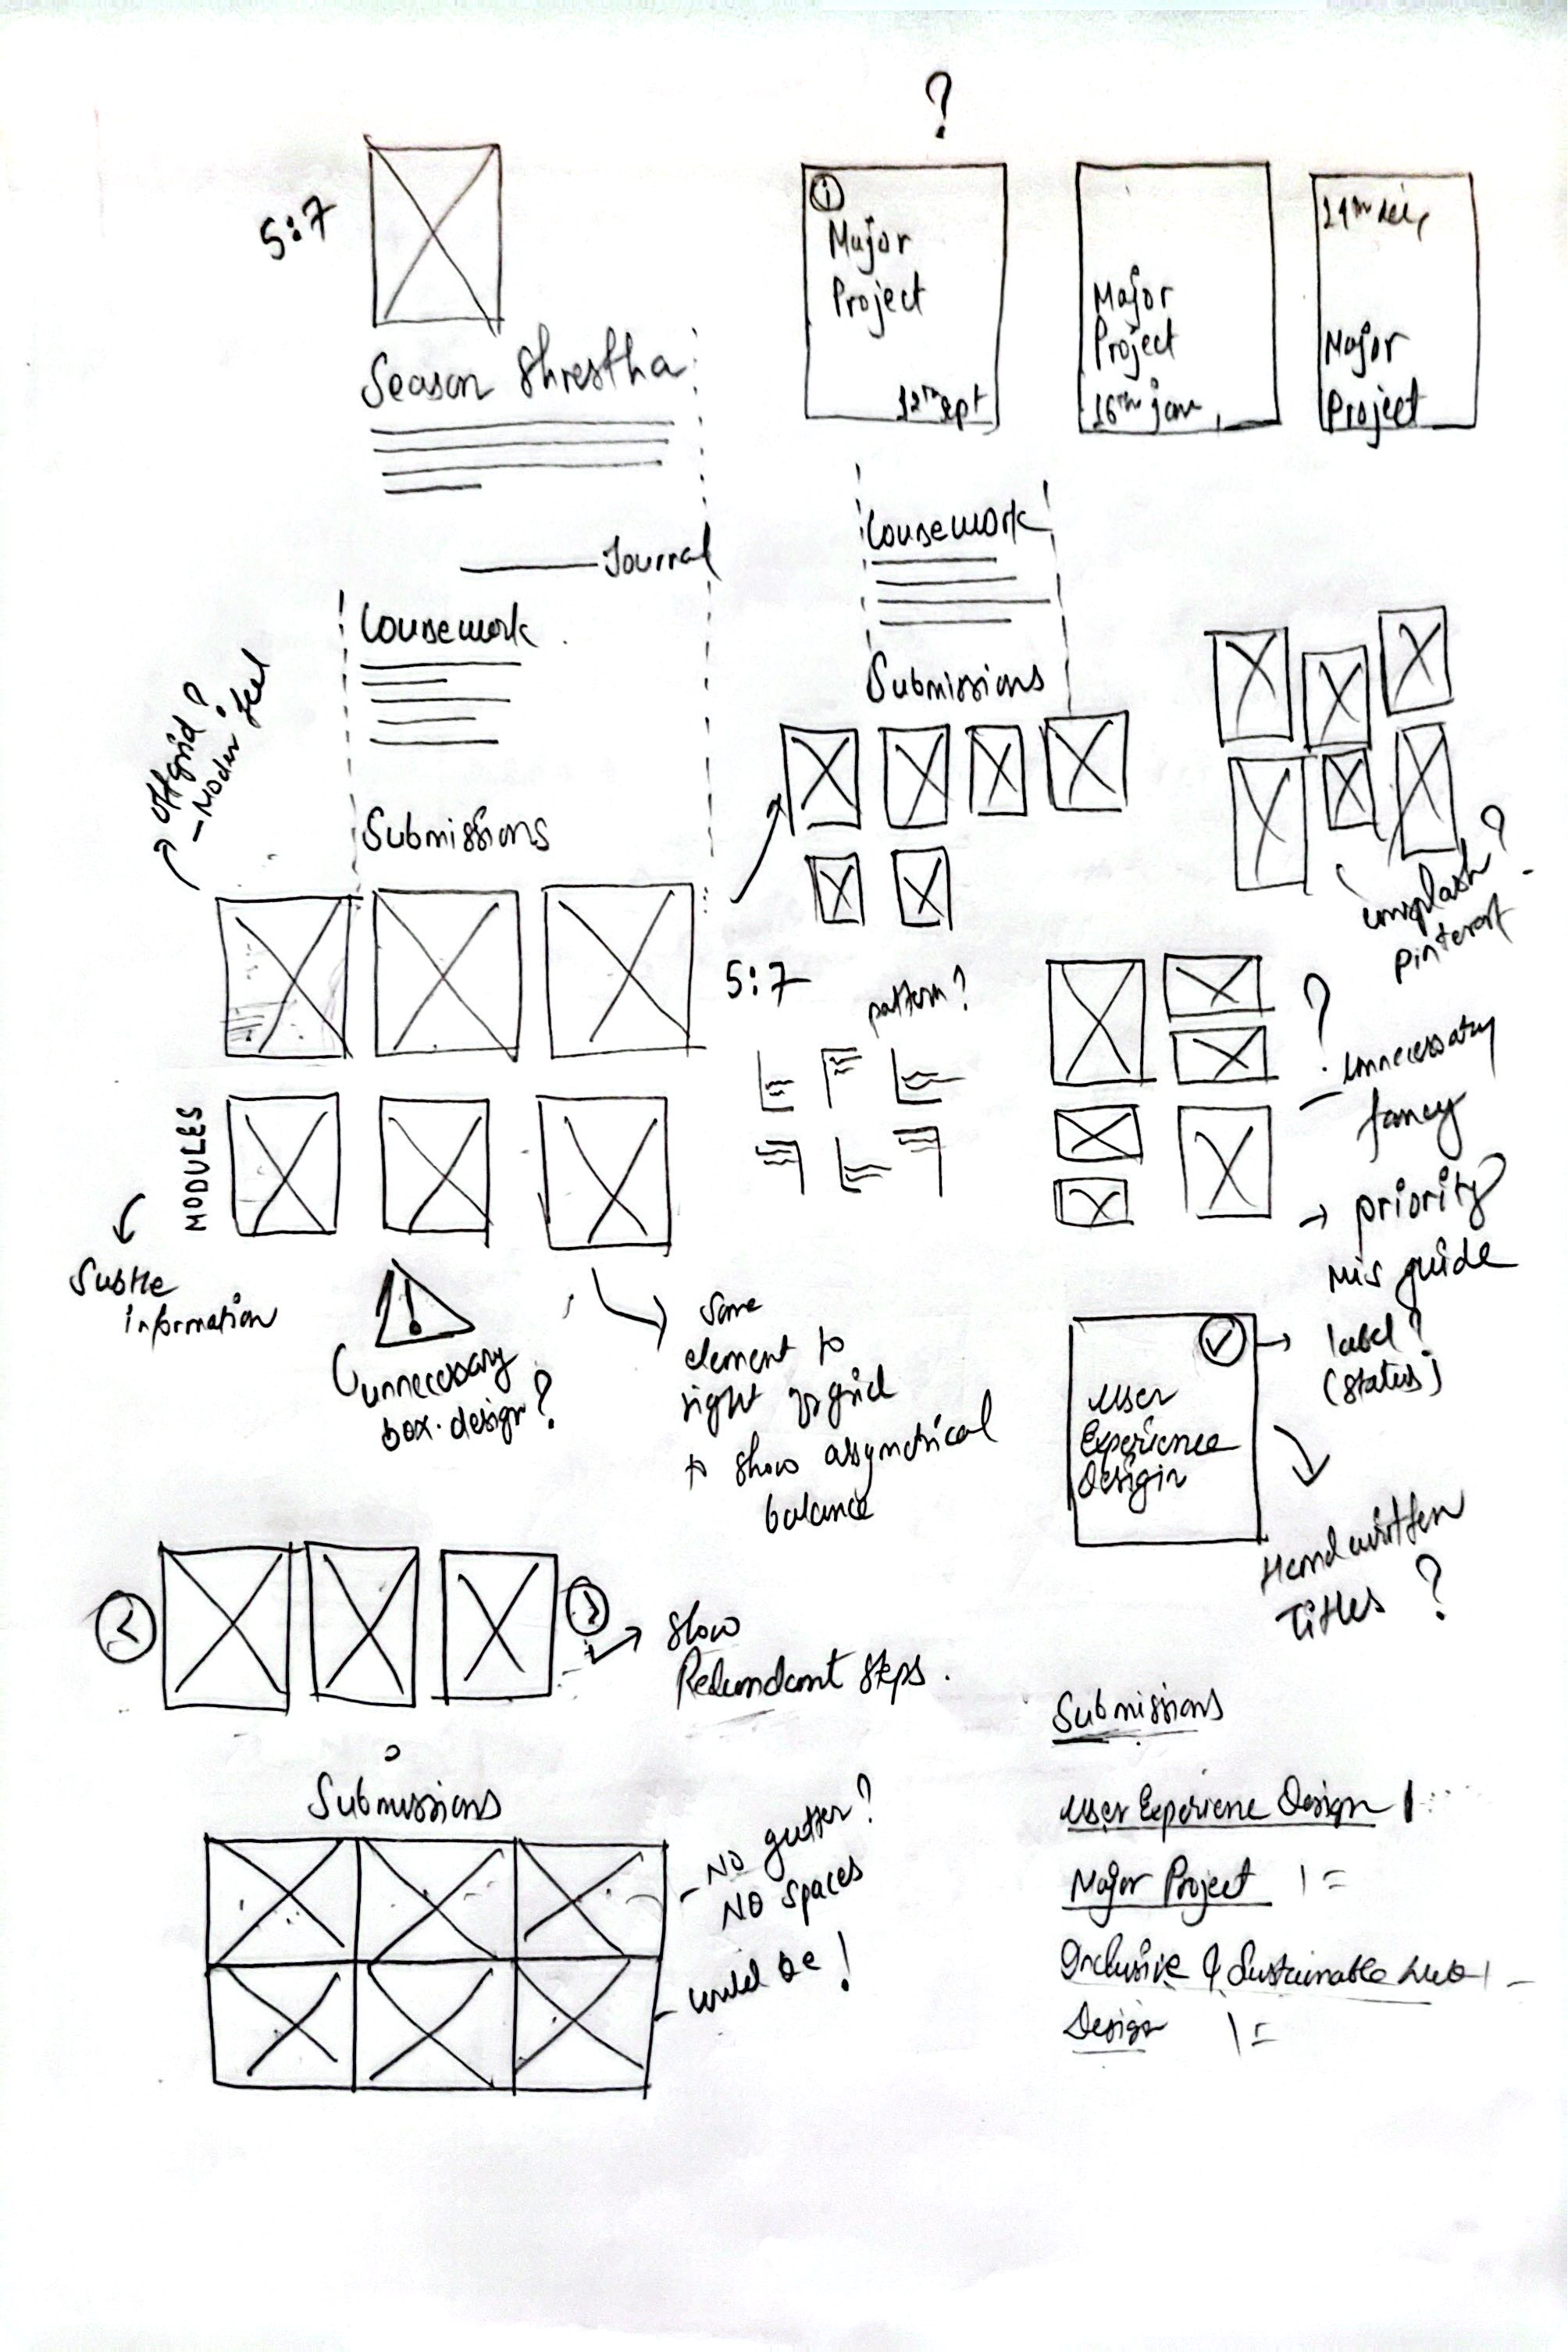 ?
5:7
Season Shrestha
Journal
Coursework
Offgrid?
- Modern feel
Submissions
MODULES
Subtle
information
!
unnecessary
box design?
Some
element to
right of grid
to show asymetrical
balance
i
Major
Project
12th sept
Major
Project
16th jan
Major
Project
Coursework
Submissions
unsplash?
pinterest
5:7
pattern?
?
unnecessary
fancy
→ priority
mis guide
label?
(status)
User
Experience
Design
Handwritten
Titles ?
Slow
Redundant steps.
Submissions
- NO gutter?
NO spaces
- could be!
Submissions
User Experience Design
Major Project
Inclusive & Sustainable Web
Design